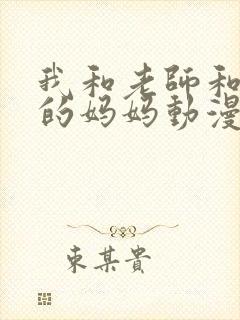 我和老師和
的妈妈動漫
東某貴